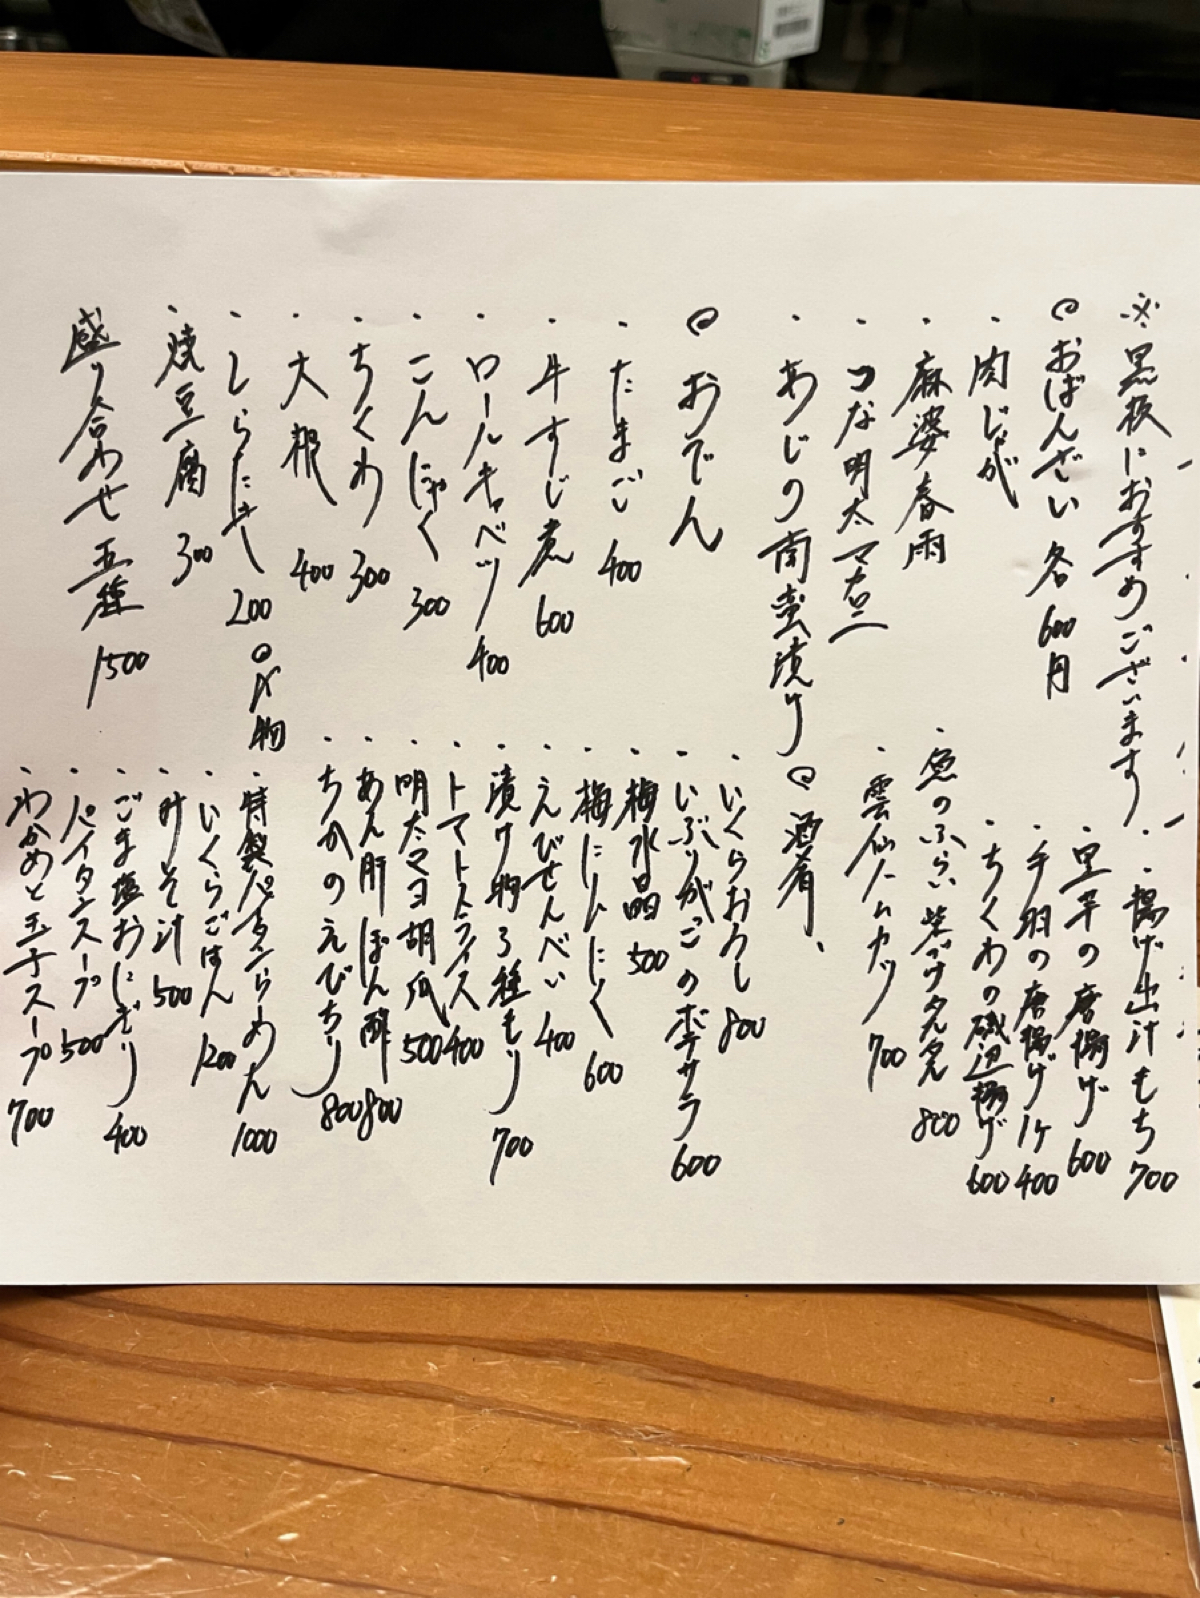 ※黒板におすすめございます
◎おばんざい 各600円
・肉じゃが
・麻婆春雨
・つな明太マカロニ
・あじの南蛮漬け
◎おでん
・たまご 400
・牛すじ煮 600
・ロールキャベツ 400
・こんにゃく 300
・ちくわ 300
・大根 400
・しらたき 200
・焼豆腐 300
盛り合わせ 五種 1500
・揚げ出汁もち 700
・里芋の唐揚げ 600
・手羽の唐揚げ 1ケ 400
・ちくわの磯辺揚げ 600
・魚のふらい柴づけタルタル 800
・雲仙ハムカツ 700
◎酒肴、
・いくらおろし 800
・いぶりがっこのポテサラ 600
・梅水晶 500
・梅にんにく 600
・えびせんべい 400
・漬け物3種もり 700
・トマトスライス 400
・明太マヨ胡瓜 500
・あん肝ぽん酢 800
・ちかのえびちり 800
◎〆物
・特製パイタンらーめん 1000
・いくらごはん 1200
・みそ汁 500
・ごま塩おにぎり 400
・パイタンスープ 500
・わかめと玉子スープ 700